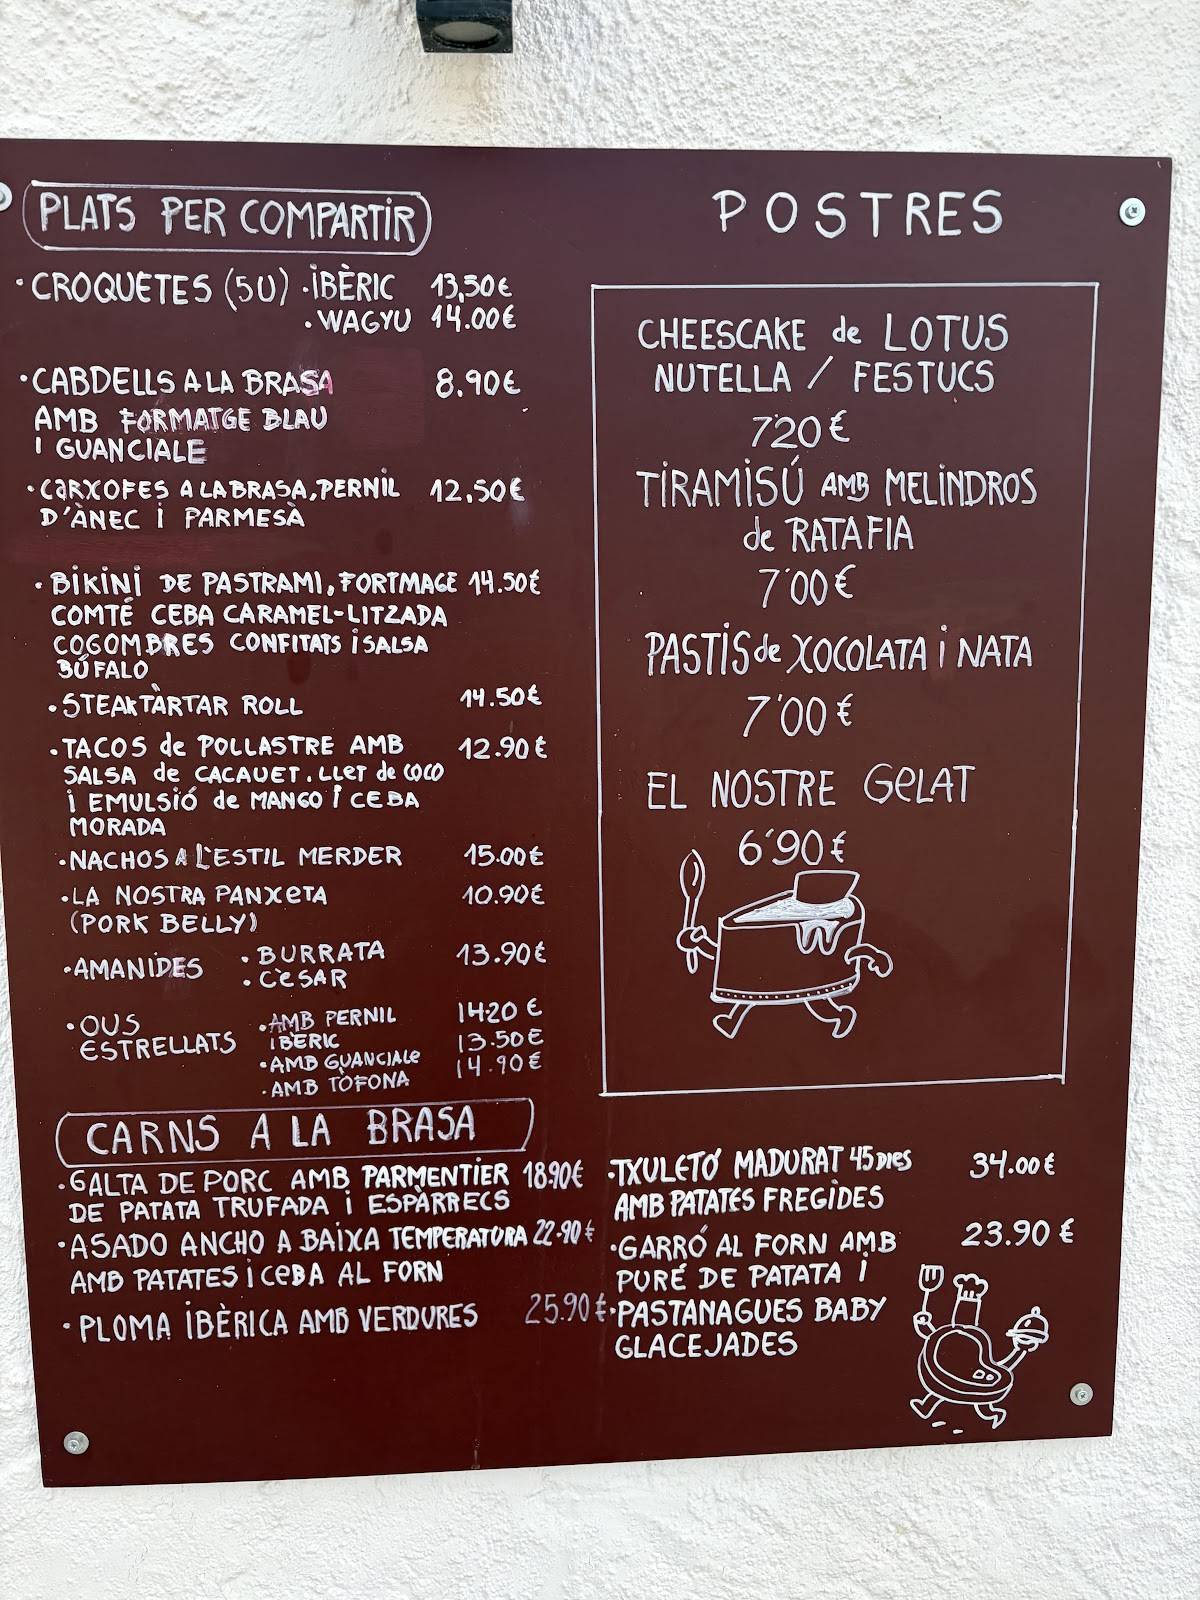 PLATS PER COMPARTIR
· CROQUETES (5U) · IBÈRIC 13,50€
· WAGYU 14.00€
· CABDELLS A LA BRASA 8.90€
AMB FORMATGE BLAU
I GUANCIALE
· CARXOFES A LA BRASA, PERNIL 12,50€
D'ÀNEC I PARMESÀ
· BIKINI DE PASTRAMI, FORTMAGE 14.50€
COMTÉ CEBA CARAMEL-LITZADA
COGOMBRES CONFITATS I SALSA
BÚFALO
· STEAK TÀRTAR ROLL 14.50€
· TACOS de POLLASTRE AMB 12.90€
SALSA de CACAUET. LLET de COCO
I EMULSIÓ de MANGO I CEBA
MORADA
· NACHOS A L'ESTIL MERDER 15.00€
· LA NOSTRA PANXETA 10.90€
(PORK BELLY)
· AMANIDES · BURRATA 13.90€
· CÈSAR
· OUS ESTRELLATS · AMB PERNIL 14.20 €
IBÈRIC 13.50€
· AMB GUANCIALE 14.90€
· AMB TÒFONA
CARNS A LA BRASA
· GALTA DE PORC AMB PARMENTIER 18.90€
DE PATATA TRUFADA I ESPÀRRECS
· ASADO ANCHO A BAIXA TEMPERATURA 22.90€
AMB PATATES I CEBA AL FORN
· PLOMA IBÈRICA AMB VERDURES 25.90€
POSTRES
CHEESCAKE de LOTUS
NUTELLA / FESTUCS
7'20€
TIRAMISÚ AMB MELINDROS
de RATAFIA
7'00€
PASTIS de XOCOLATA I NATA
7'00€
EL NOSTRE GELAT
6'90€
· TXULETÓ MADURAT 45 DIES 34.00€
AMB PATATES FREGIDES
· GARRÓ AL FORN AMB 23.90 €
PURÉ DE PATATA I
· PASTANAGUES BABY
GLACEJADES